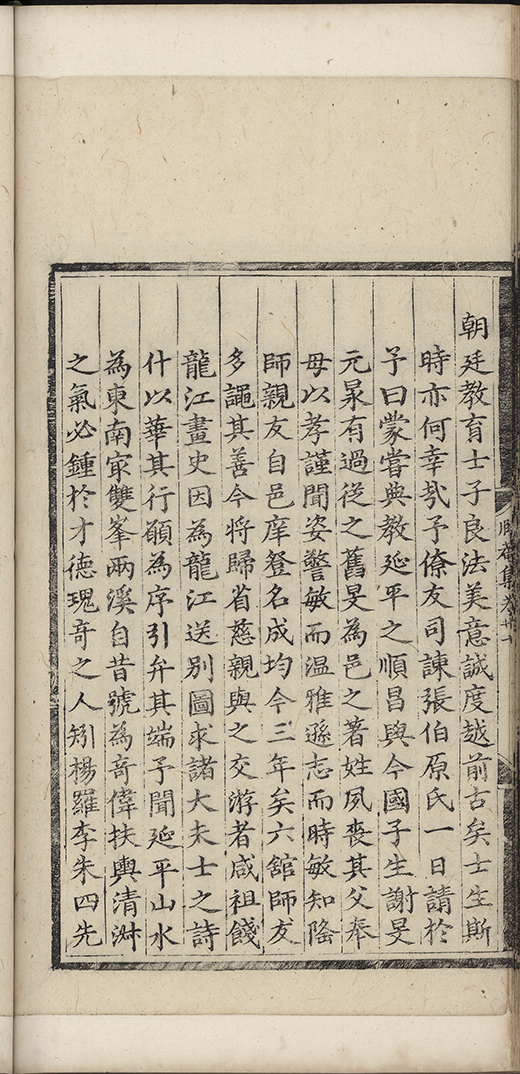 朝廷教育士子良法美意誠度越前古矣士生斯
時亦何幸㢤予僚友司諫張伯原氏一日請於
子曰蒙嘗典教延平之順昌與今國子生謝旻
元杲有過從之舊旻為邑之著姓夙喪其父奉
母以孝謹聞姿警敏而温雅遜志而時敏知隆
師親友自邑庠登名成均今三年矣六舘師友
多譝其善今將歸省慈親與之交游者咸祖餞
龍江畫史因為龍江送别圖求諸大夫士之詩
什以華其行願為序引弁其端予聞延平山水
為東南㝡雙峯兩溪自昔號為竒偉扶輿清淑
之氣必鍾於才德瑰竒之人矧楊羅李朱四先
集卷廿